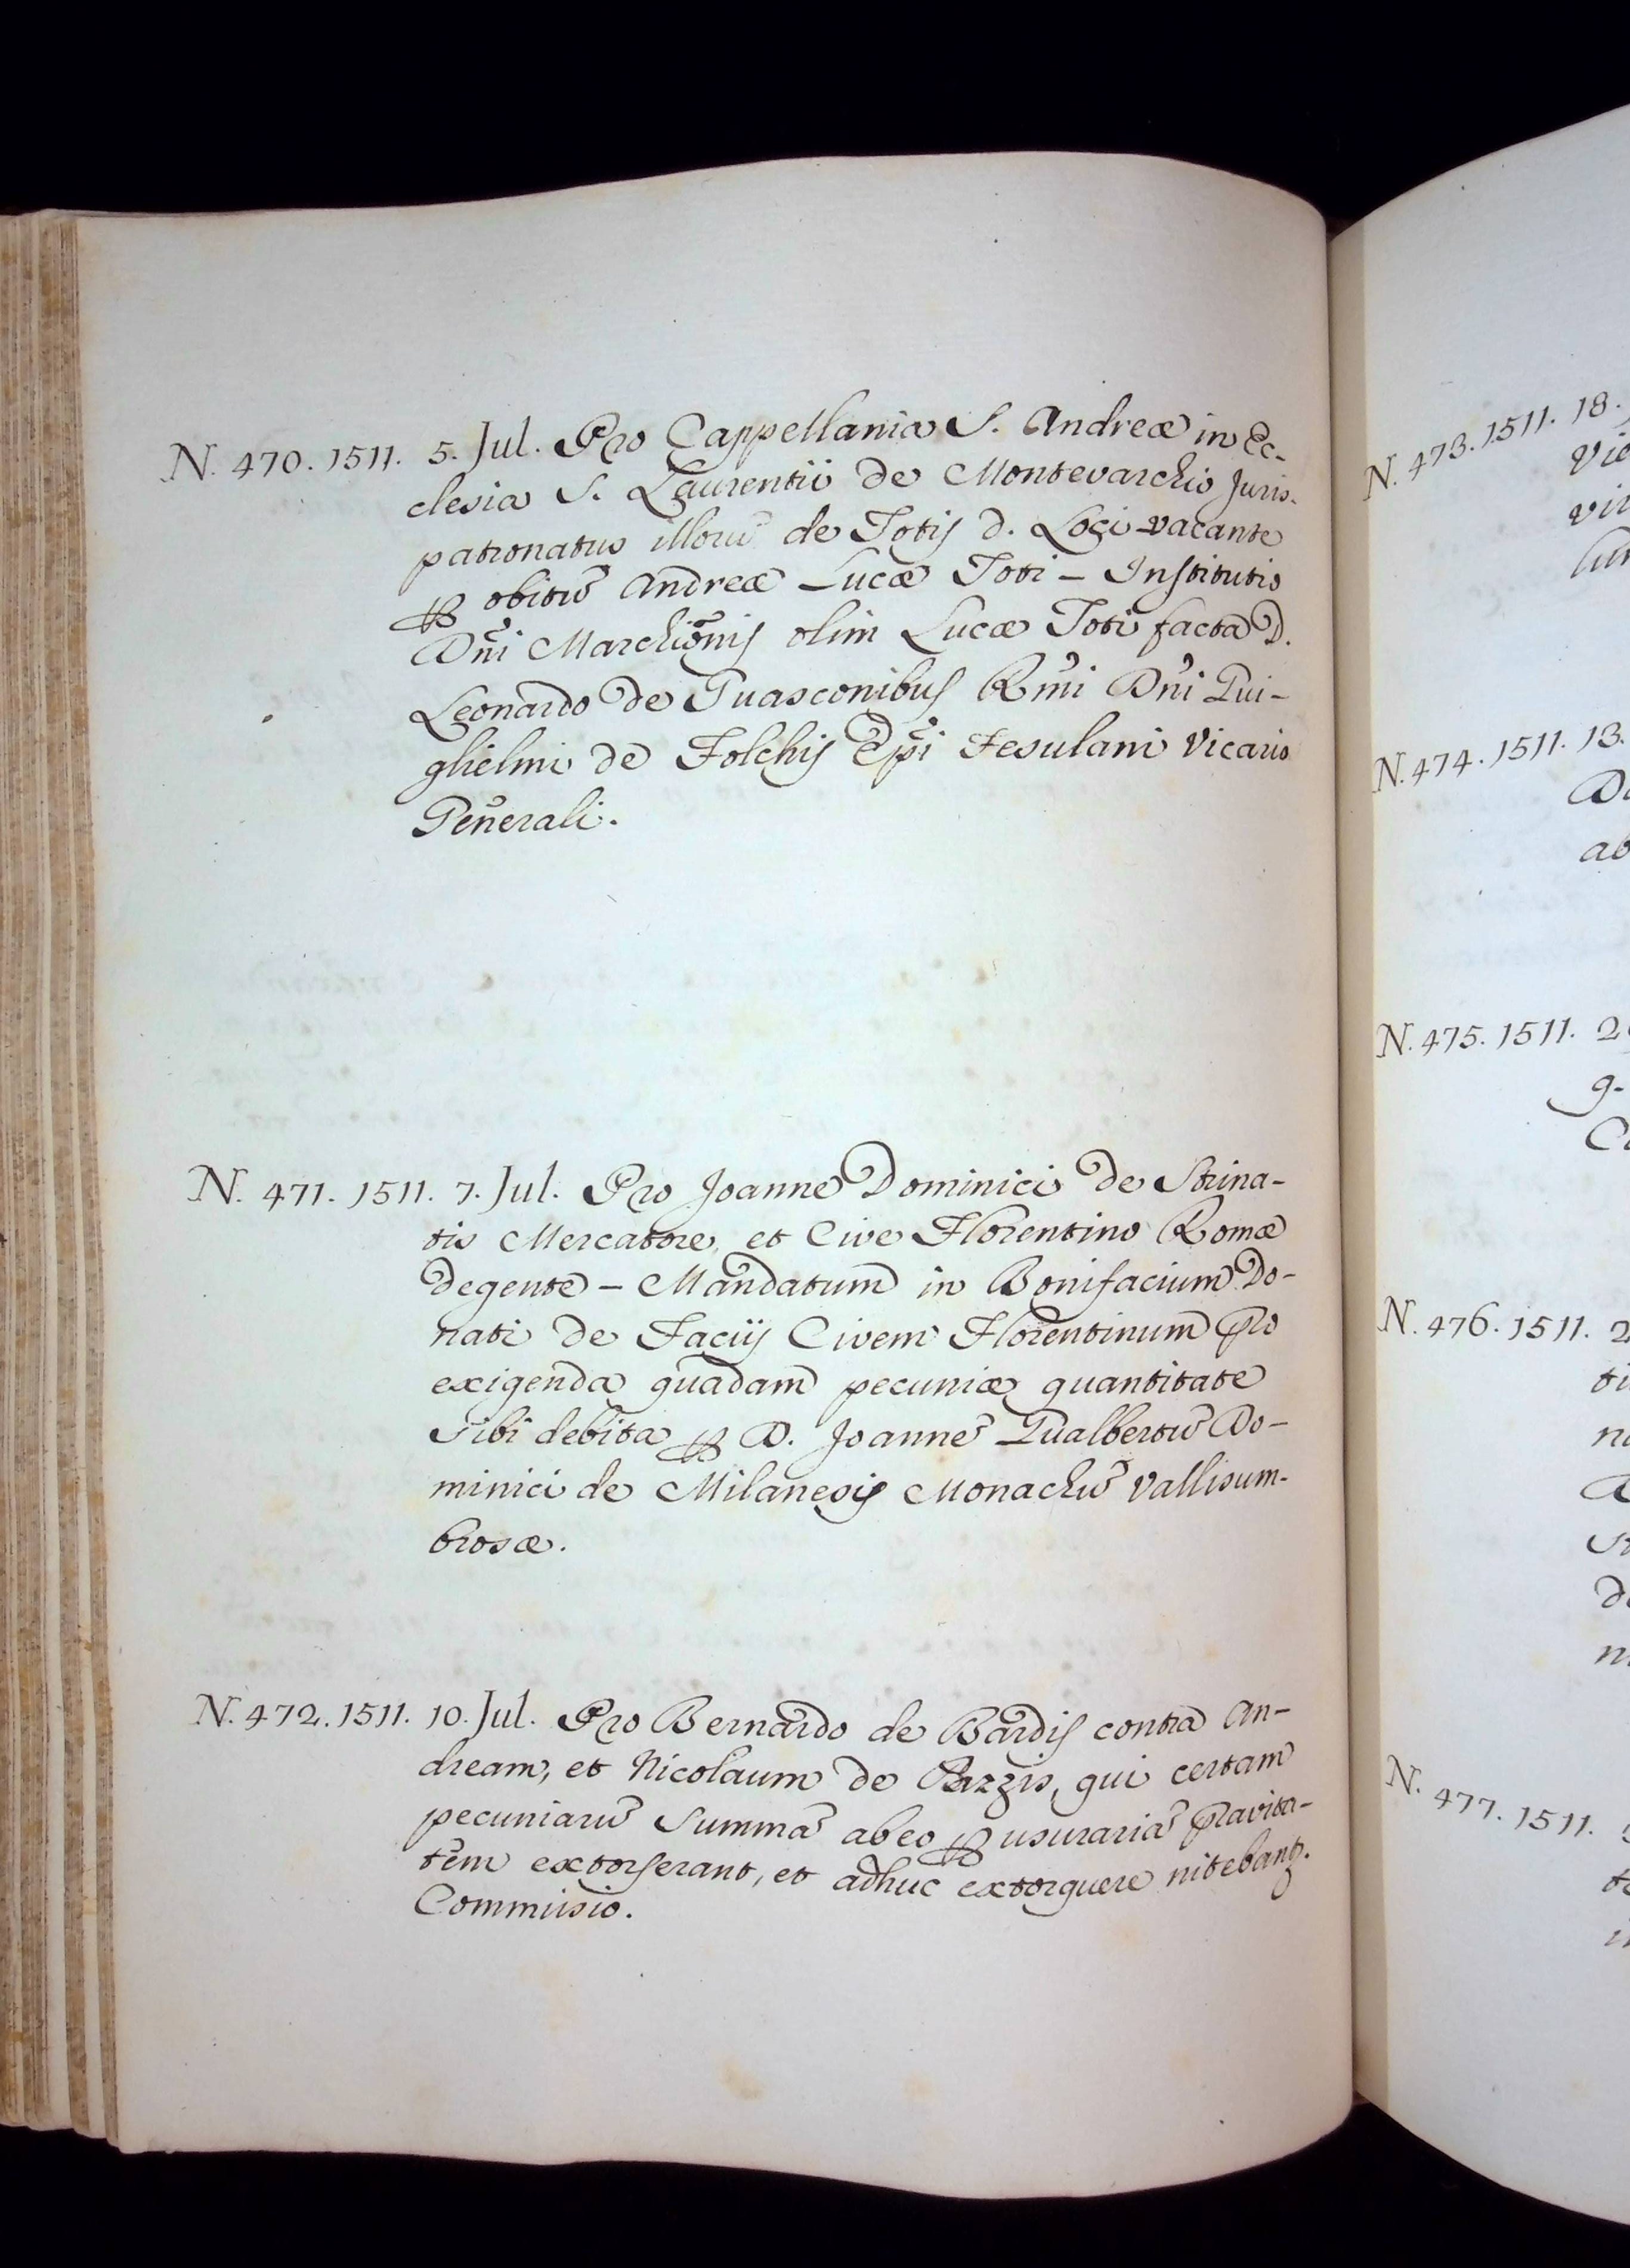 N. 470. 1511. 5. Jul. Pro Cappellania S. Andreæ in Ec-
clesia S. Laurentii de Montevarchio Juris-
patronatus illorũ de Totis d. Loci vacante
ꝑ obitũ Andreæ Lucæ Toti – Institutio
Dñi Marchioñis olim Lucæ Toti facta D.
Leonardo de Guasconibus Rm̃i Dñi Gui-
glielmi de Folchis Ep̃i Fesulani Vicario
Generali.
N. 471. 1511. 7. Jul. Pro Joanne Dominici de Strina-
tis Mercatore, et Cive Florentino Romæ
degente – Mandatum in Bonifacium Do-
nati de Facijs Civem Florentinum pro
exigenda quadam pecuniæ quantitate
Sibi debita ꝑ D. Joannẽ Gualbertũ Do-
minici de Milanesijs Monachũ Vallisum-
brosæ.
N. 472. 1511. 10. Jul. Pro Bernardo de Bardis contra An-
dream, et Nicolaum de Pazzis, qui certam
pecuniarũ Summã ab eo ꝑ usurariã pravita-
tem extorserant, et adhuc extorquere nitebantꝫ.
Commisio.
N. 473. 1511. 18.
N. 474. 1511. 13.
ab
N. 475. 1511.
N. 476. 1511.
N. 477. 1511.